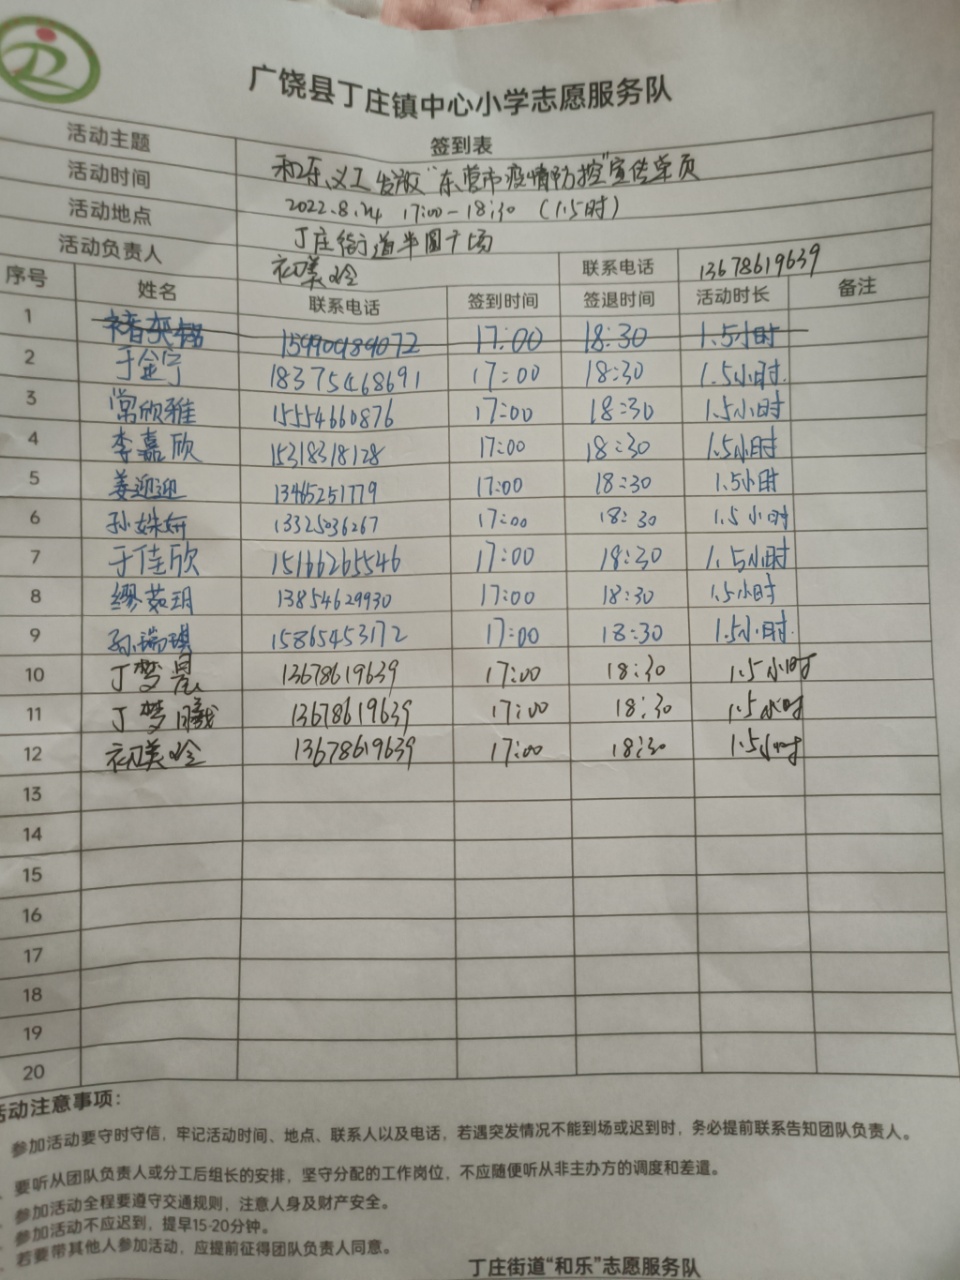 广饶县丁庄镇中心小学志愿服务队
签到表
活动主题 和乐义工发放“东营市疫情防控”宣传单页
活动时间 2022.8.24 17:00-18:30 (1.5时)
活动地点 丁庄街道半圆广场
活动负责人 初美玲 联系电话 13678619639
序号 姓名 联系电话 签到时间 签退时间 活动时长 备注
1 17:00 18:30 1.5小时
2 于金宁 18375468691 17:00 18:30 1.5小时.
3 常欣雅 15554660876 17:00 18:30 1.5小时
4 李嘉欣 15318318128 17:00 18:30 1.5小时
5 姜迎迎 13465251779 17:00 18:30 1.5小时
6 孙姝妍 13325036267 17:00 18:30 1.5小时
7 于佳欣 15166265546 17:00 18:30 1.5小时
8 缪茹玥 13854629930 17:00 18:30 1.5小时
9 孙瑞琪 15865453172 17:00 18:30 1.5小时.
10 丁梦晨 13678619639 17:00 18:30 1.5小时
11 丁梦曦 13678619639 17:00 18:30 1.5小时
12 初美玲 13678619639 17:00 18:30 1.5小时
13
14
15
16
17
18
19
20
活动注意事项：
参加活动要守时守信，牢记活动时间、地点、联系人以及电话，若遇突发情况不能到场或迟到时，务必提前联系告知团队负责人。
要听从团队负责人或分工后组长的安排，坚守分配的工作岗位，不应随便听从非主办方的调度和差遣。
参加活动全程要遵守交通规则，注意人身及财产安全。
参加活动不应迟到，提早15-20分钟。
若要带其他人参加活动，应提前征得团队负责人同意。
丁庄街道“和乐”志愿服务队